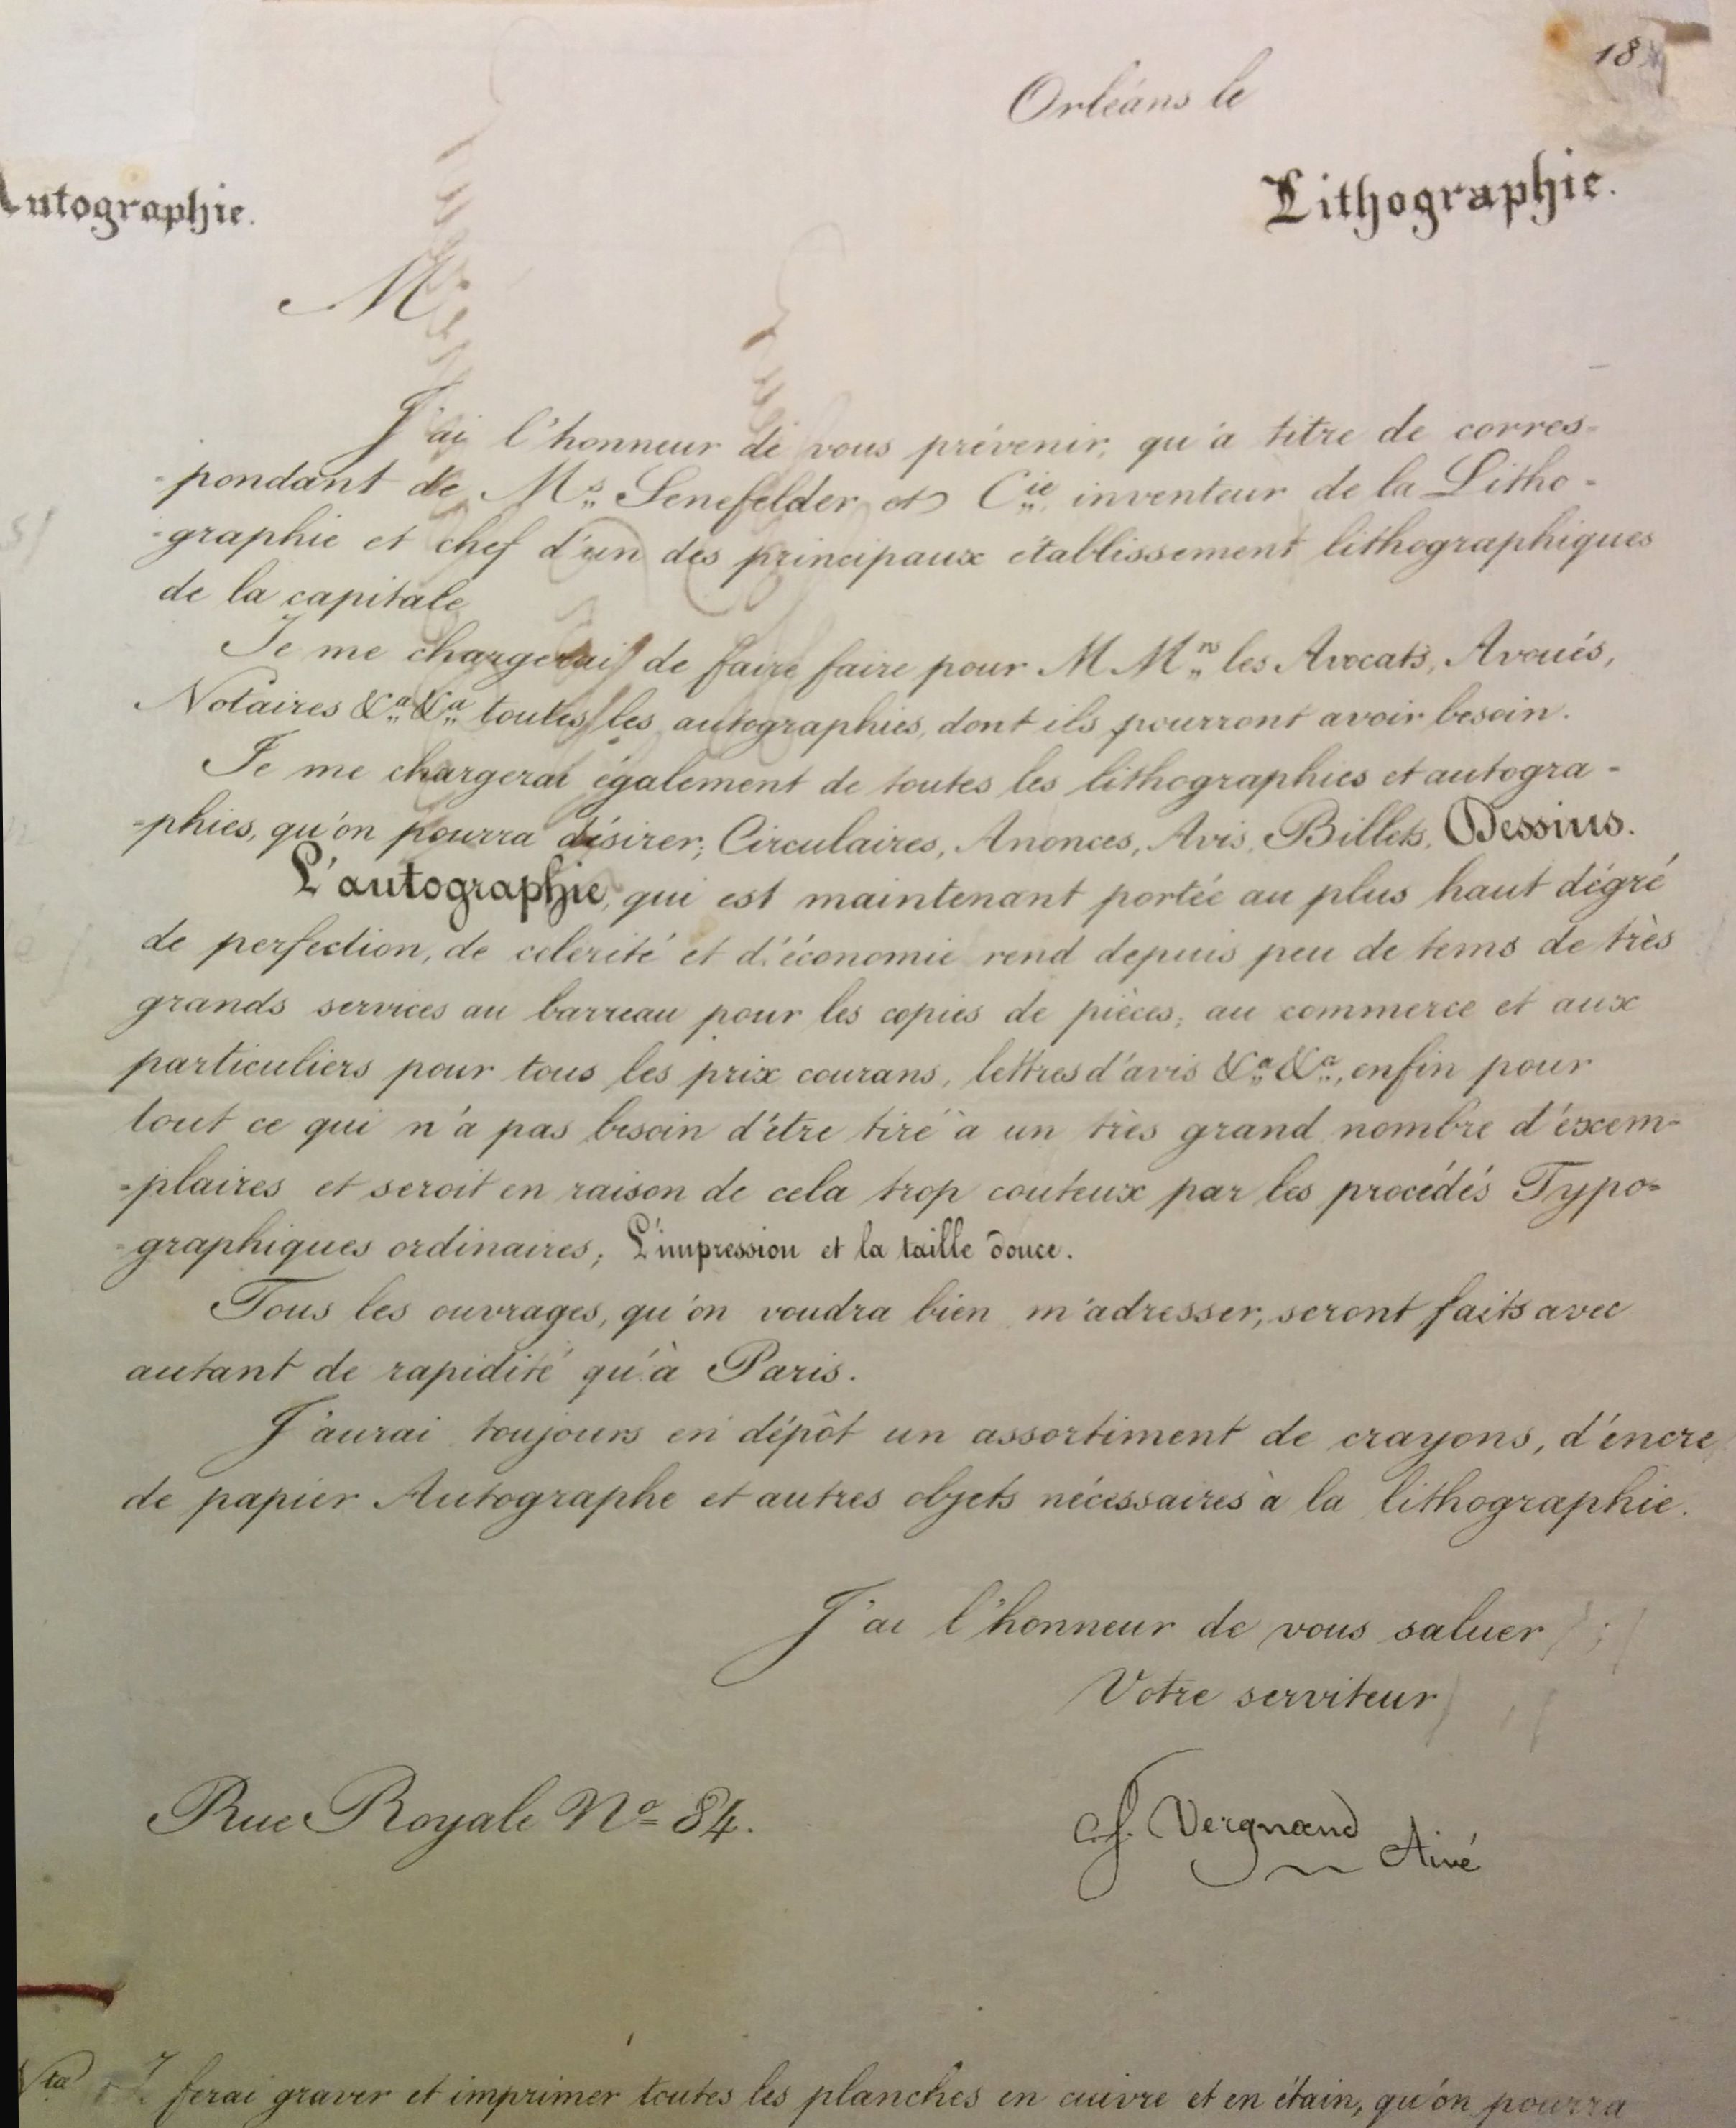 Orléans le 18
Autographie. Lithographie.
M
J'ai l'honneur de vous prévenir, qu'à titre de corres-
-pondant de Mrs. Senefelder et Cie. inventeur de la Litho-
-graphie et chef d'un des principaux établissement lithographiques
de la capitale
Je me chargerai de faire faire pour M Mrs. les Avocats, Avoués,
Notaires &a. &a. toutes les autographies, dont ils pourront avoir besoin.
Je me chargerai également de toutes les lithographies et autogra-
-phies, qu'on pourra désirer; Circulaires, Anonces, Avis, Billets, Dessins.
L'autographie, qui est maintenant portée au plus haut dégré
de perfection, de célerité et d'économie rend depuis peu de tems de très
grands services au barreau pour les copies de pièces, au commerce et aux
particuliers pour tous les prix courans, lettres d'avis &a. &a., enfin pour
tout ce qui n'a pas besoin d'être tiré à un très grand nombre d'éxcem-
-plaires et seroit en raison de cela trop couteux par les procédés Typo-
-graphiques ordinaires; L'impression et la taille douce.
Tous les ouvrages, qu'on voudra bien m'adresser, seront faits avec
autant de rapidité qu'à Paris.
J'aurai toujours en dépôt un assortiment de crayons, d'encre,
de papier Autographe et autres objets nécessaires à la lithographie.
J'ai l'honneur de vous saluer
Votre serviteur
Rue Royale No. 84. f. Vergnaud Ainé
Nta ferai graver et imprimer toutes les planches en cuivre et en étain, qu'on pourra